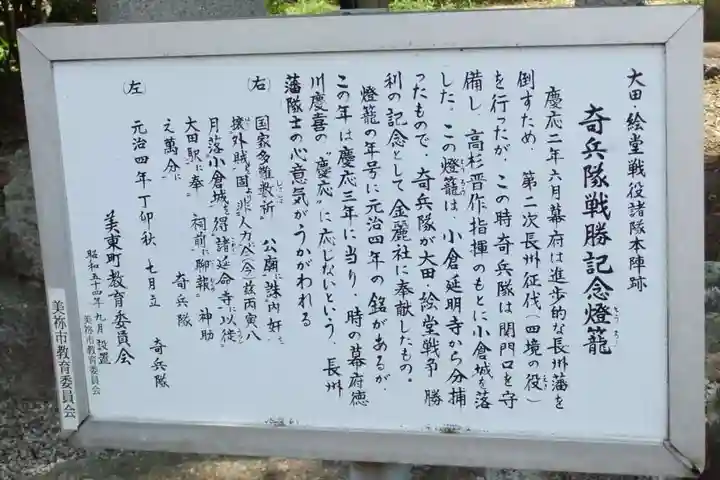 大田・絵堂戦役諸隊本陣跡
奇兵隊戦勝記念燈籠
とうろう
慶応二年六月幕府は進歩的な長州藩を
倒すため 第二次長州征伐(四境の役)
を行ったが、この時奇兵隊は関門口を守
備し、高杉晋作指揮のもとに小倉城を落
した。この燈籠は、小倉延明寺から分捕
ったもので、奇兵隊が大田・絵堂戦争勝
利の記念として金麗社に奉献したもの。
燈籠の年号に元治四年の銘があるが、
この年は慶応三年に当り、時の幕府徳
川慶喜の"慶応"に応じないという、長州
藩隊士の心意気がうかがわれる
(右) 国家多難救所 公廟誅内奸
攘外賊固非人力 今茲丙寅八
月落小倉城得諸延命寺に以徙
大田駅に奉 祠前に聊報 神助
之萬分に 奇兵隊
(左) 元治四年丁卯秋 七月立 奇兵隊
美東町教育委員会
昭和五十四年九月設置
美祢市教育委員会
美祢市教育委員会